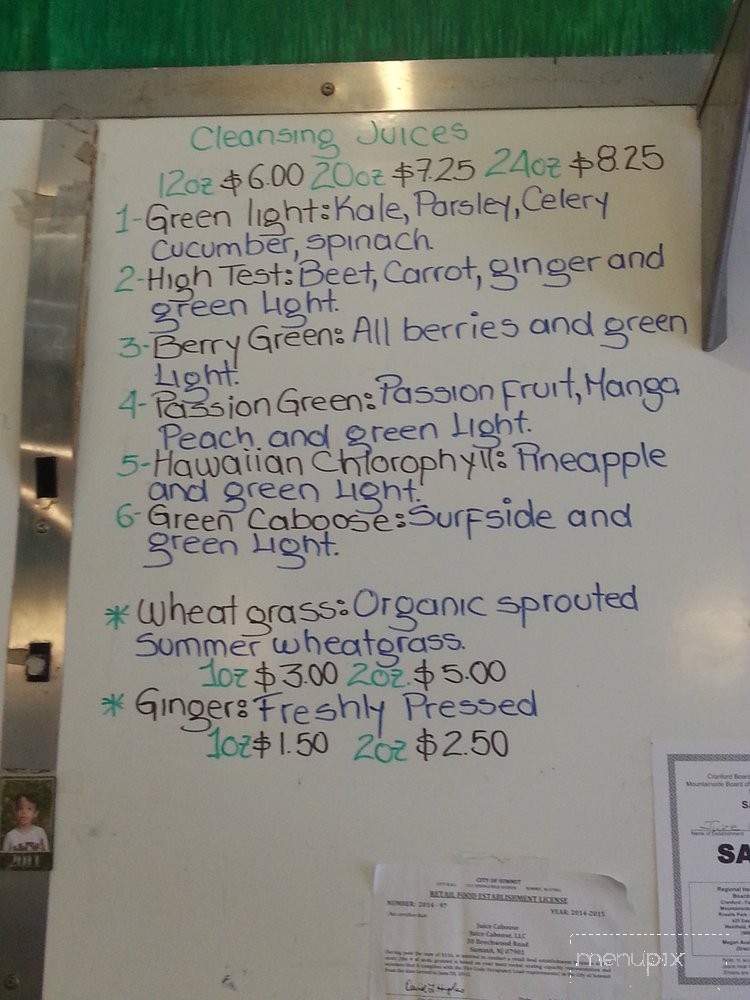 Cleansing Juices
12oz $6.00 20oz $7.25 24oz $8.25
1-Green light: Kale, Parsley, Celery
cucumber, spinach.
2-High Test: Beet, Carrot, ginger and
green Light.
3-Berry Green: All berries and green
Light.
4-Passion Green: Passion fruit, Manga
Peach and green Light.
5-Hawaiian Chlorophyll: Pineapple
and green Light.
6-Green Caboose: Surfside and
green Light.
* Wheat grass: Organic sprouted
Summer wheatgrass.
1oz $3.00 2oz. $5.00
* Ginger: Freshly Pressed
1oz $1.50 2oz $2.50
2011
Cranford Board
Mountainside Board of
Name of Establishment
SA
Regional He
Board
CITY OF SUMMIT
RETAIL FOOD ESTABLISHMENT LICENSE
NUMBER: 2014-97
YEAR: 2014-2015
Juice Caboose
Juice Caboose, LLC
30 Beechwood Road
Summit, NJ 07901
menupix